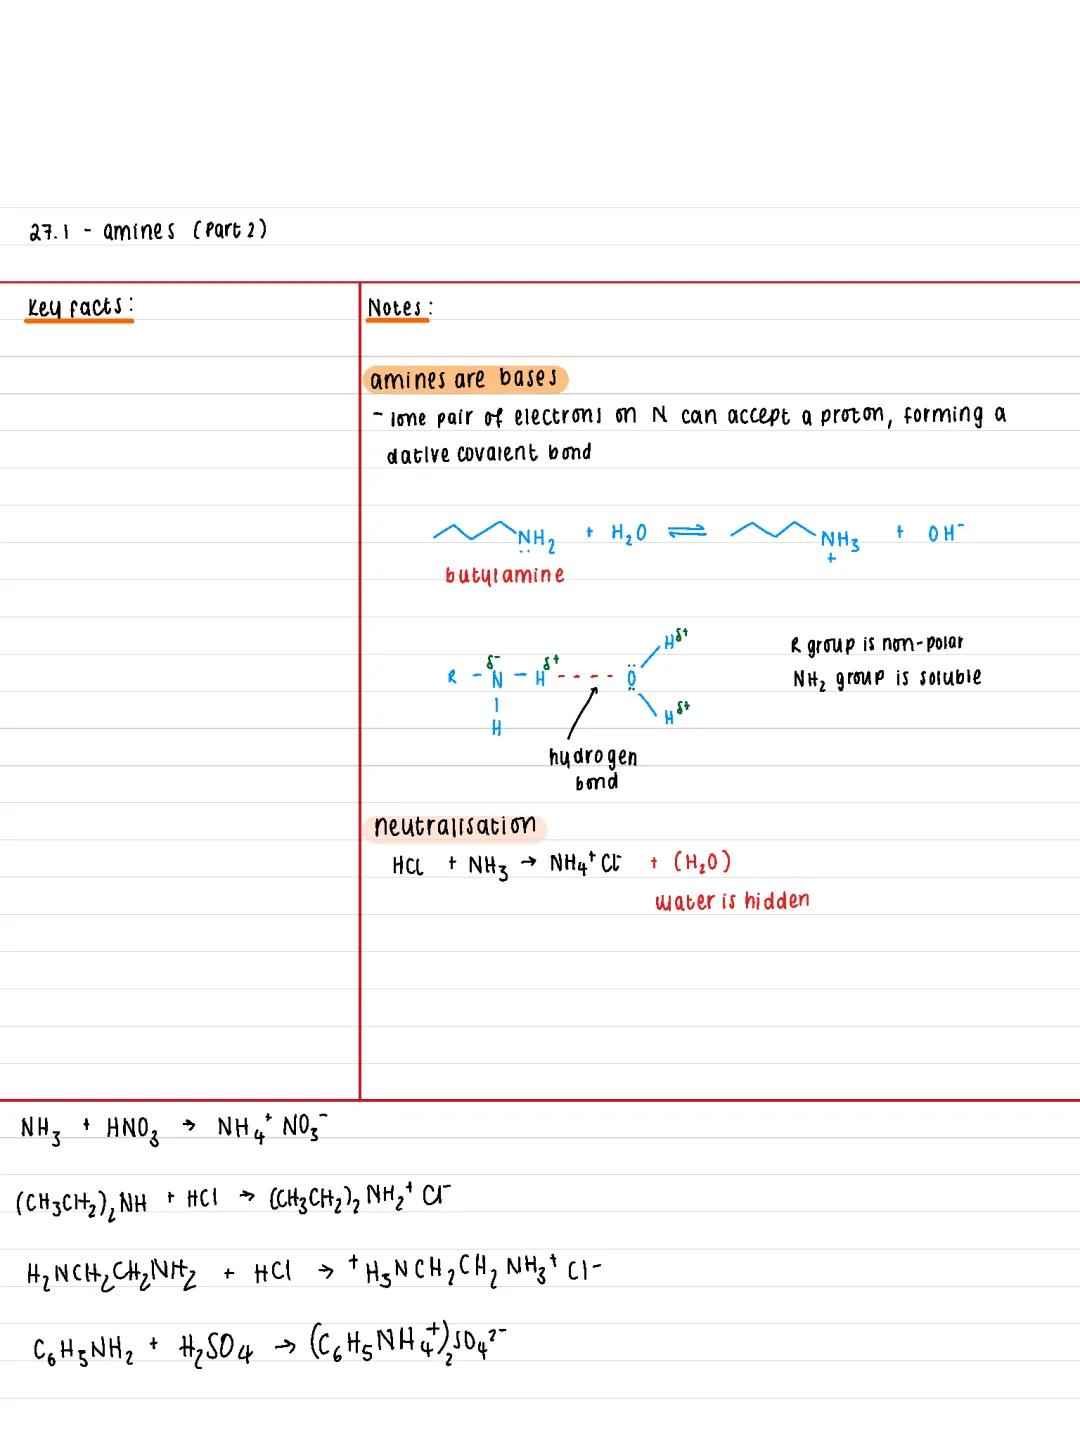 27.1 - amines (Part 2)
Key facts:
Notes:
amines are bases
- lone pair of electrons on N can accept a proton, forming a
dative covalent bond
NH₂ + H₂O ⇌ NH₃⁺ + OH⁻
butylamine
R - N^δ⁻ - H^δ⁺ ---- O
H
H^δ⁺
H^δ⁺
hydrogen
bond
R group is non-polar
NH₂ group is soluble
neutralisation
HCl + NH₃ → NH₄⁺ Cl⁻ + (H₂O)
water is hidden
NH₃ + HNO₃ → NH₄⁺ NO₃⁻
(CH₃CH₂)₂NH + HCl → (CH₃CH₂)₂ NH₂⁺ Cl⁻
H₂NCH₂CH₂NH₂ + HCl → ⁺H₃NCH₂CH₂NH₃⁺ Cl-
C₆H₅NH₂ + H₂SO₄ → (C₆H₅NH₄⁺)₂SO₄²⁻